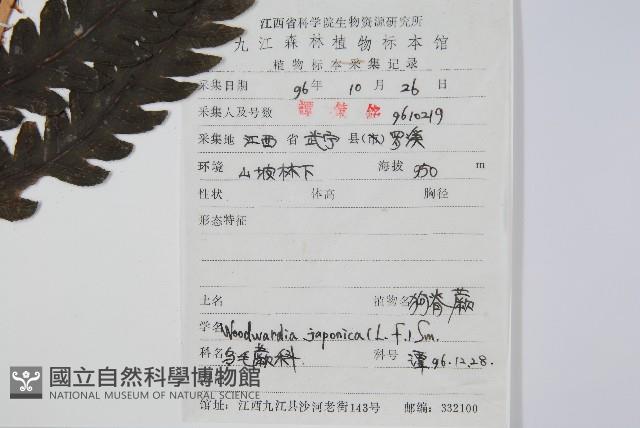 江西省科学院生物资源研究所
九江森林植物标本馆
植物标本采集记录
采集日期 96年 10月 26日
采集人及号数 譚策銘 9610219
采集地 江西省 武宁县(市) 罗溪
环境 山坡林下 海拔 950 m
性状 体高 胸径
形态特征
土名 植物名 狗脊蕨
学名 Woodwardia japonica (L.f.) Sm.
科名 乌毛蕨科 科号 譚 96.12.28.
國立自然科學博物館
NATIONAL MUSEUM OF NATURAL SCIENCE
馆址:江西九江县沙河老街143号 邮编:332100